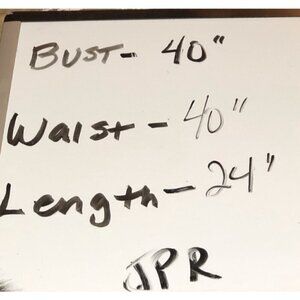 BUST- 40"
Waist - 40"
Length - 24"
JPR